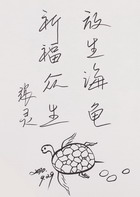 放生海龟
祈福众生
张灵